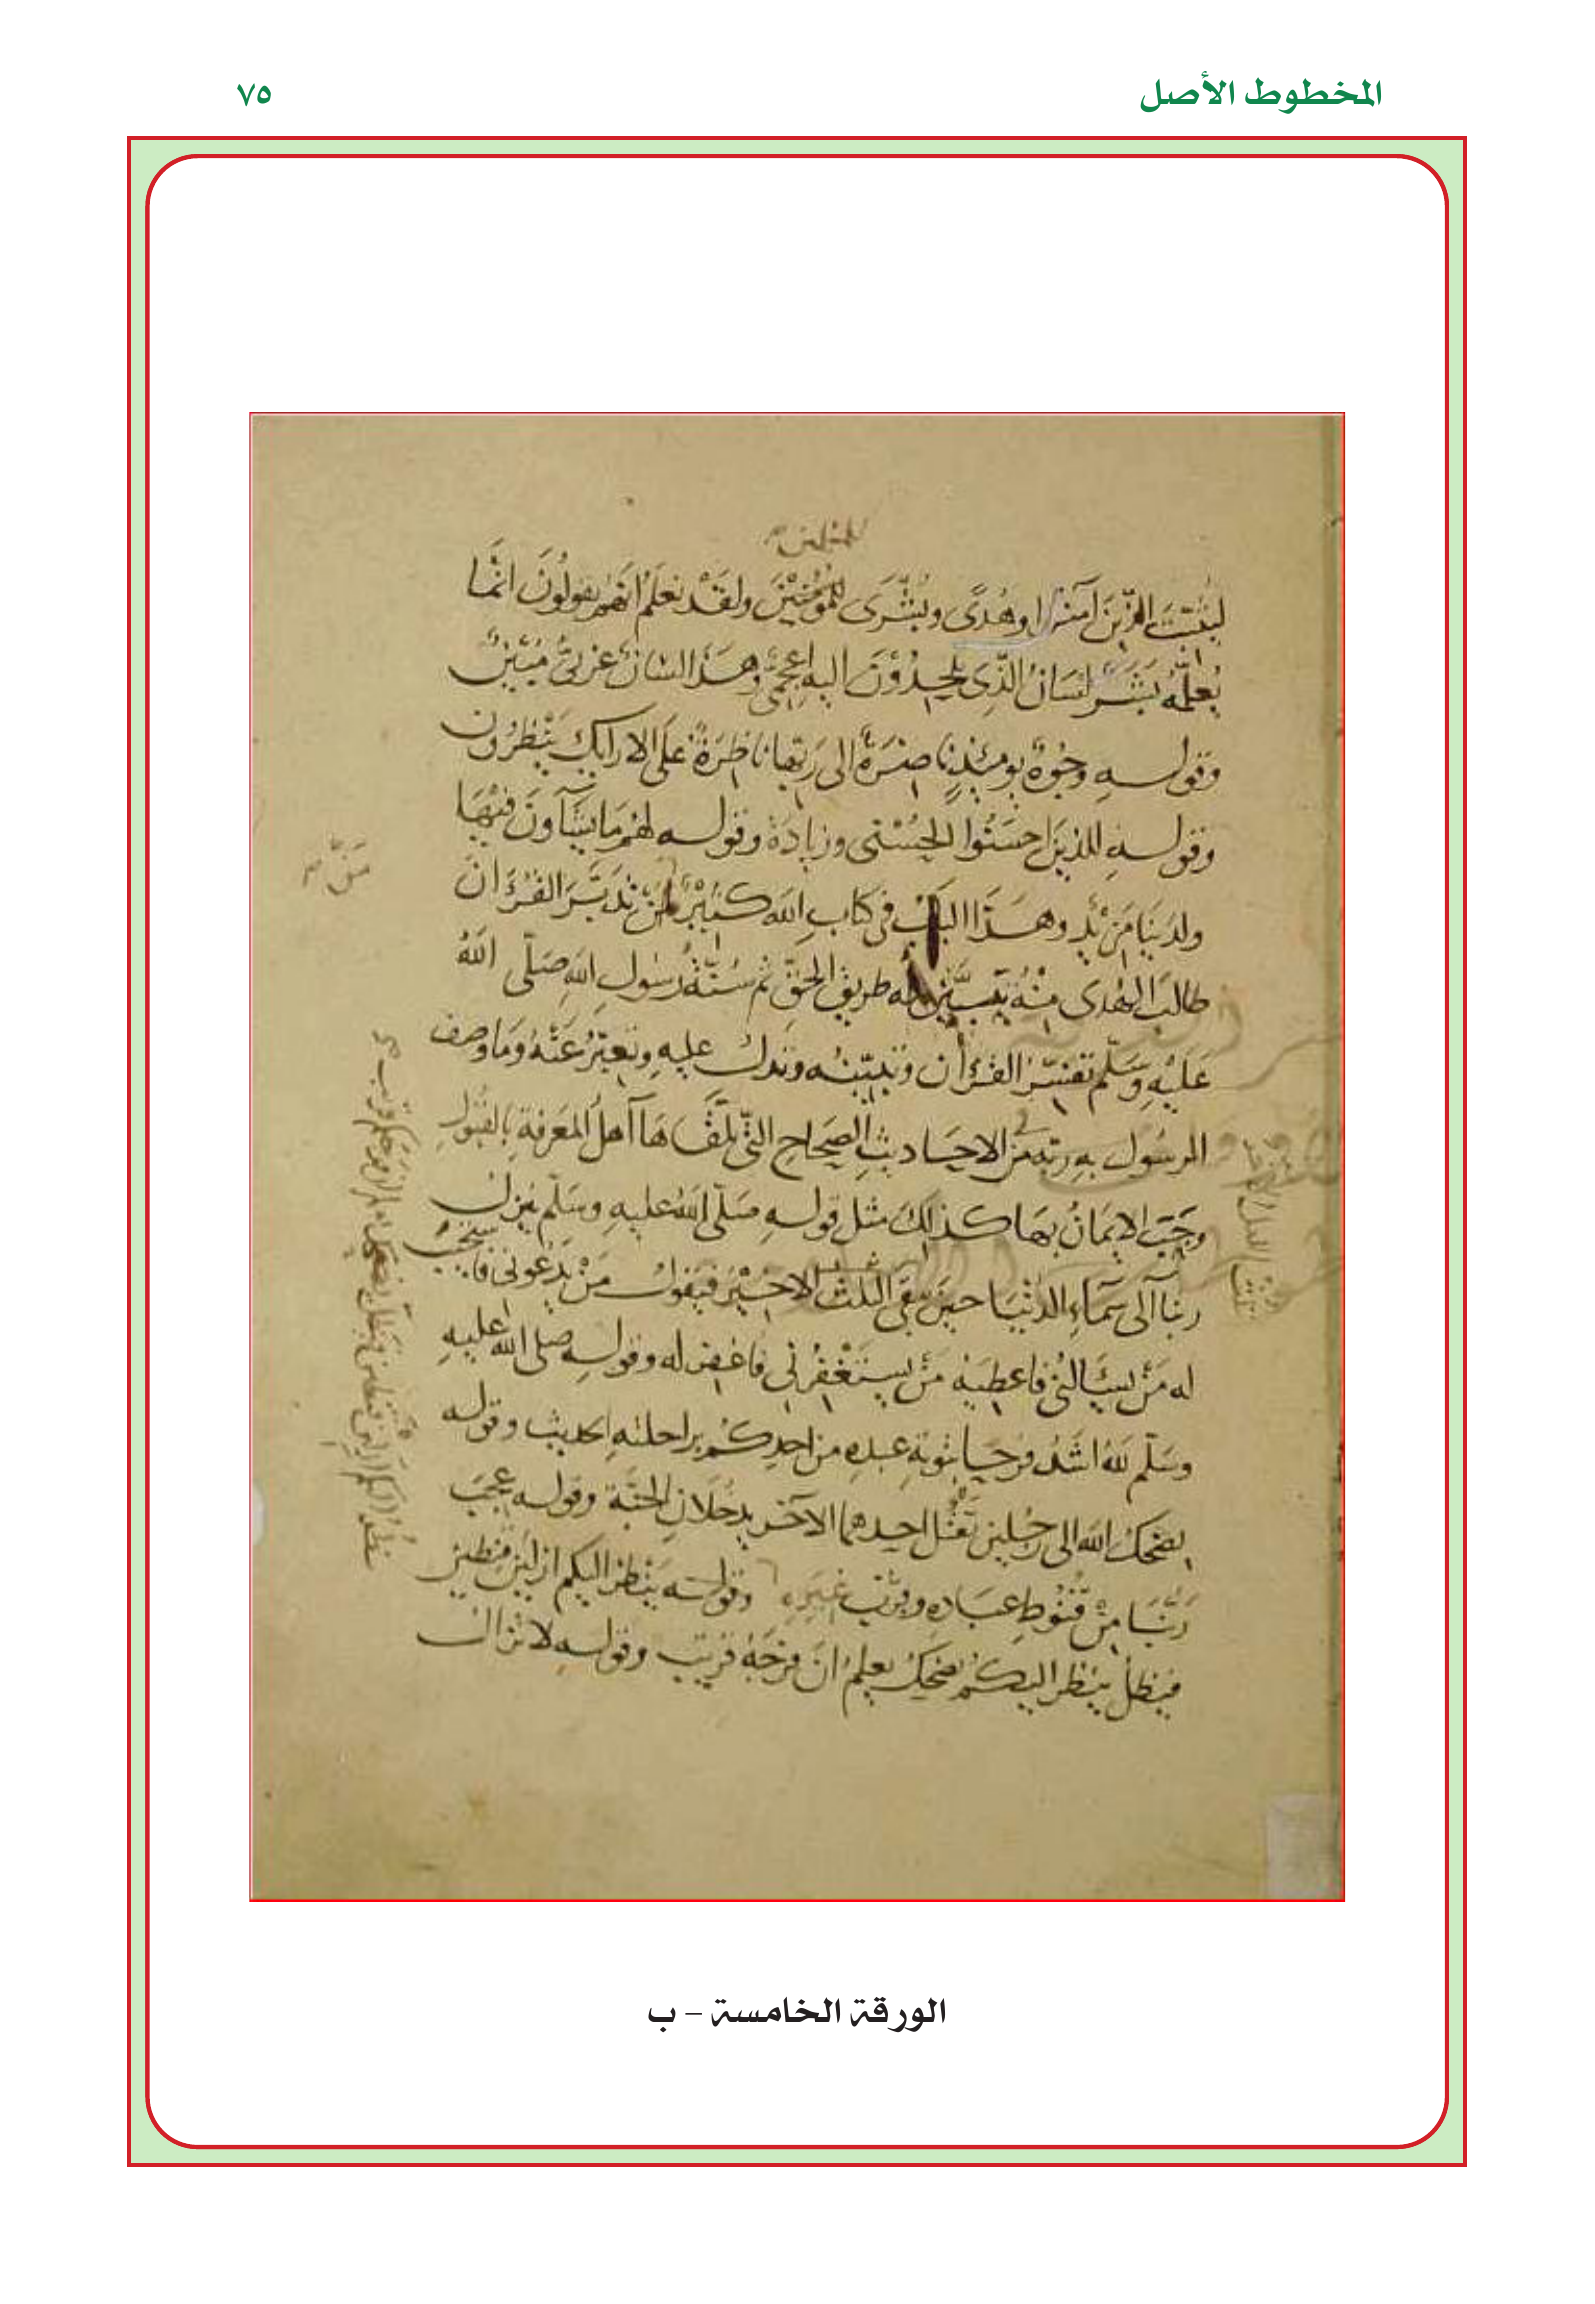 المخطوط الأصل
٧٥
للمسلمين
ليثبت الذين آمنوا وهدى وبشرى للمؤمنين ولقد نعلم انهم يقولون انما
يعلمه بشر لسان الذى يلحدون اليه اعجمى وهذا لسان عربى مبين
وقوله وجوه يومئذ ناضرة الى ربها ناظرة على الارايك ينظرون
وقوله للذين احسنوا الحسنى وزيادة وقوله لهم ما يشاون فيها
ولدينا مزيد وهذا الباب فى كتاب الله كثير من تدبر القرآن
مَن
طالب الهدى منه تبين له طريق الحق ثم سنة رسول الله صلى الله
عليه وسلم تفسر القرآن وتبينه وتدل عليه وتعبر عنه وما وصف
الرسول به ربه من الاحاديث الصحاح التى تلقاها اهل المعرفة بالقبول
وجب الايمان بها كذلك مثل قوله صلى الله عليه وسلم ينزل
ربنا الى سماء الدنيا حين يبقى الثلث الاخير فيقول من يدعونى فاستجيب
له من يسالنى فاعطيه من يستغفرنى فاغفر له وقوله صلى الله عليه
وسلم لله اشد فرحا بتوبة عبده من احدكم براحلته الحديث وقوله
يضحك الله الى رجلين يقتل احدهما الآخر يدخلان الجنة وقوله عجب
ربنا من قنوط عباده وقرب غيره وقوله ينظر اليكم ازلين قنطين
فيظل ينظر اليكم يضحك يعلم ان فرجه قريب وقوله لا تزال
الورقة الخامسة – ب